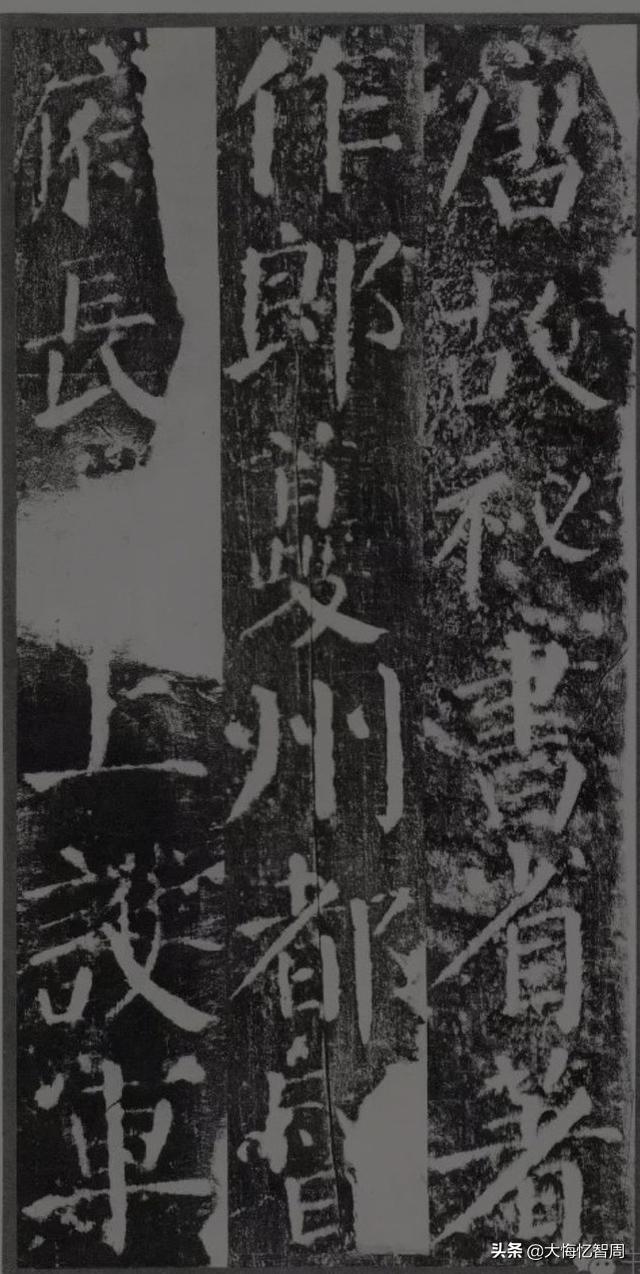 唐故祕書省著
作郎夔州都督
府長上護軍
头条 @大悔忆智周